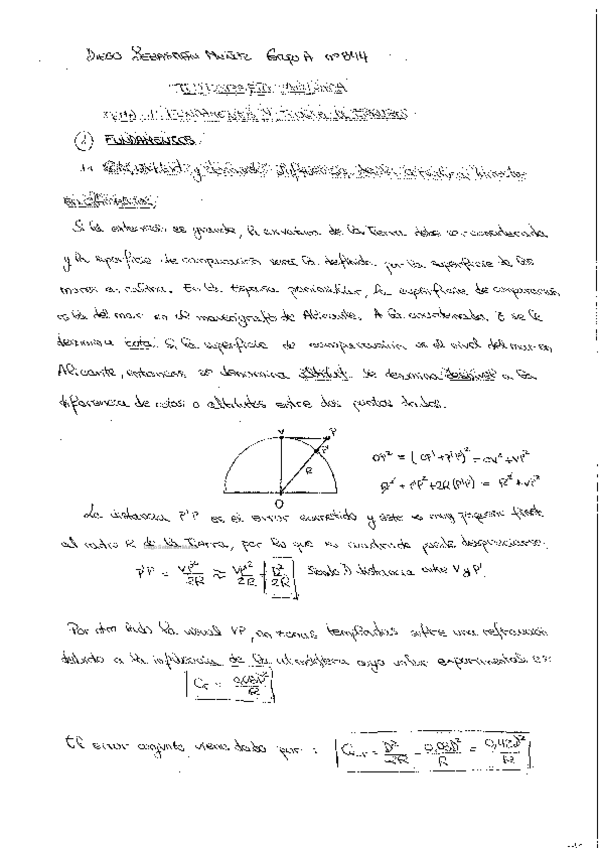 DIEGO SEBASTIÁN MUÑIZ Grupo A nº 844
TOPOGRAFÍA
TEMA 1: FUNDAMENTOS Y
1 FUNDAMENTOS
1.
Si la extensión es grande, la curvatura de la Tierra debe ser considerada
y la superficie de comparación será la definida por la superficie de los
mares en calma. En la España peninsular, la superficie de comparación
es la del mar en el mareógrafo de Alicante. A la coordenada z se le
denomina cota. Si la superficie de comparación es el nivel del mar en
Alicante, entonces se denomina altitud. Se denomina desnivel a la
diferencia de cotas o altitudes entre dos puntos dados.
V P
P'
R
O
OP² = (OP' + P'P)² = OV² + VP²
R² + P'P² + 2R(P'P) = R² + VP²
La distancia P'P es el error cometido y éste es muy pequeño frente
al radio R de la Tierra, por lo que su cuadrado puede despreciarse.
P'P = VP²/2R ≈ VP'²/2R = D²/2R Siendo D distancia entre V y P'
Por otro lado la visual VP, en zonas templadas sufre una refracción
debido a la influencia de la atmósfera cuyo valor experimental es:
Cr = 0,08D²/R
El error conjunto viene dado por: = D²/2R - 0,08D²/R = 0,42D²/R